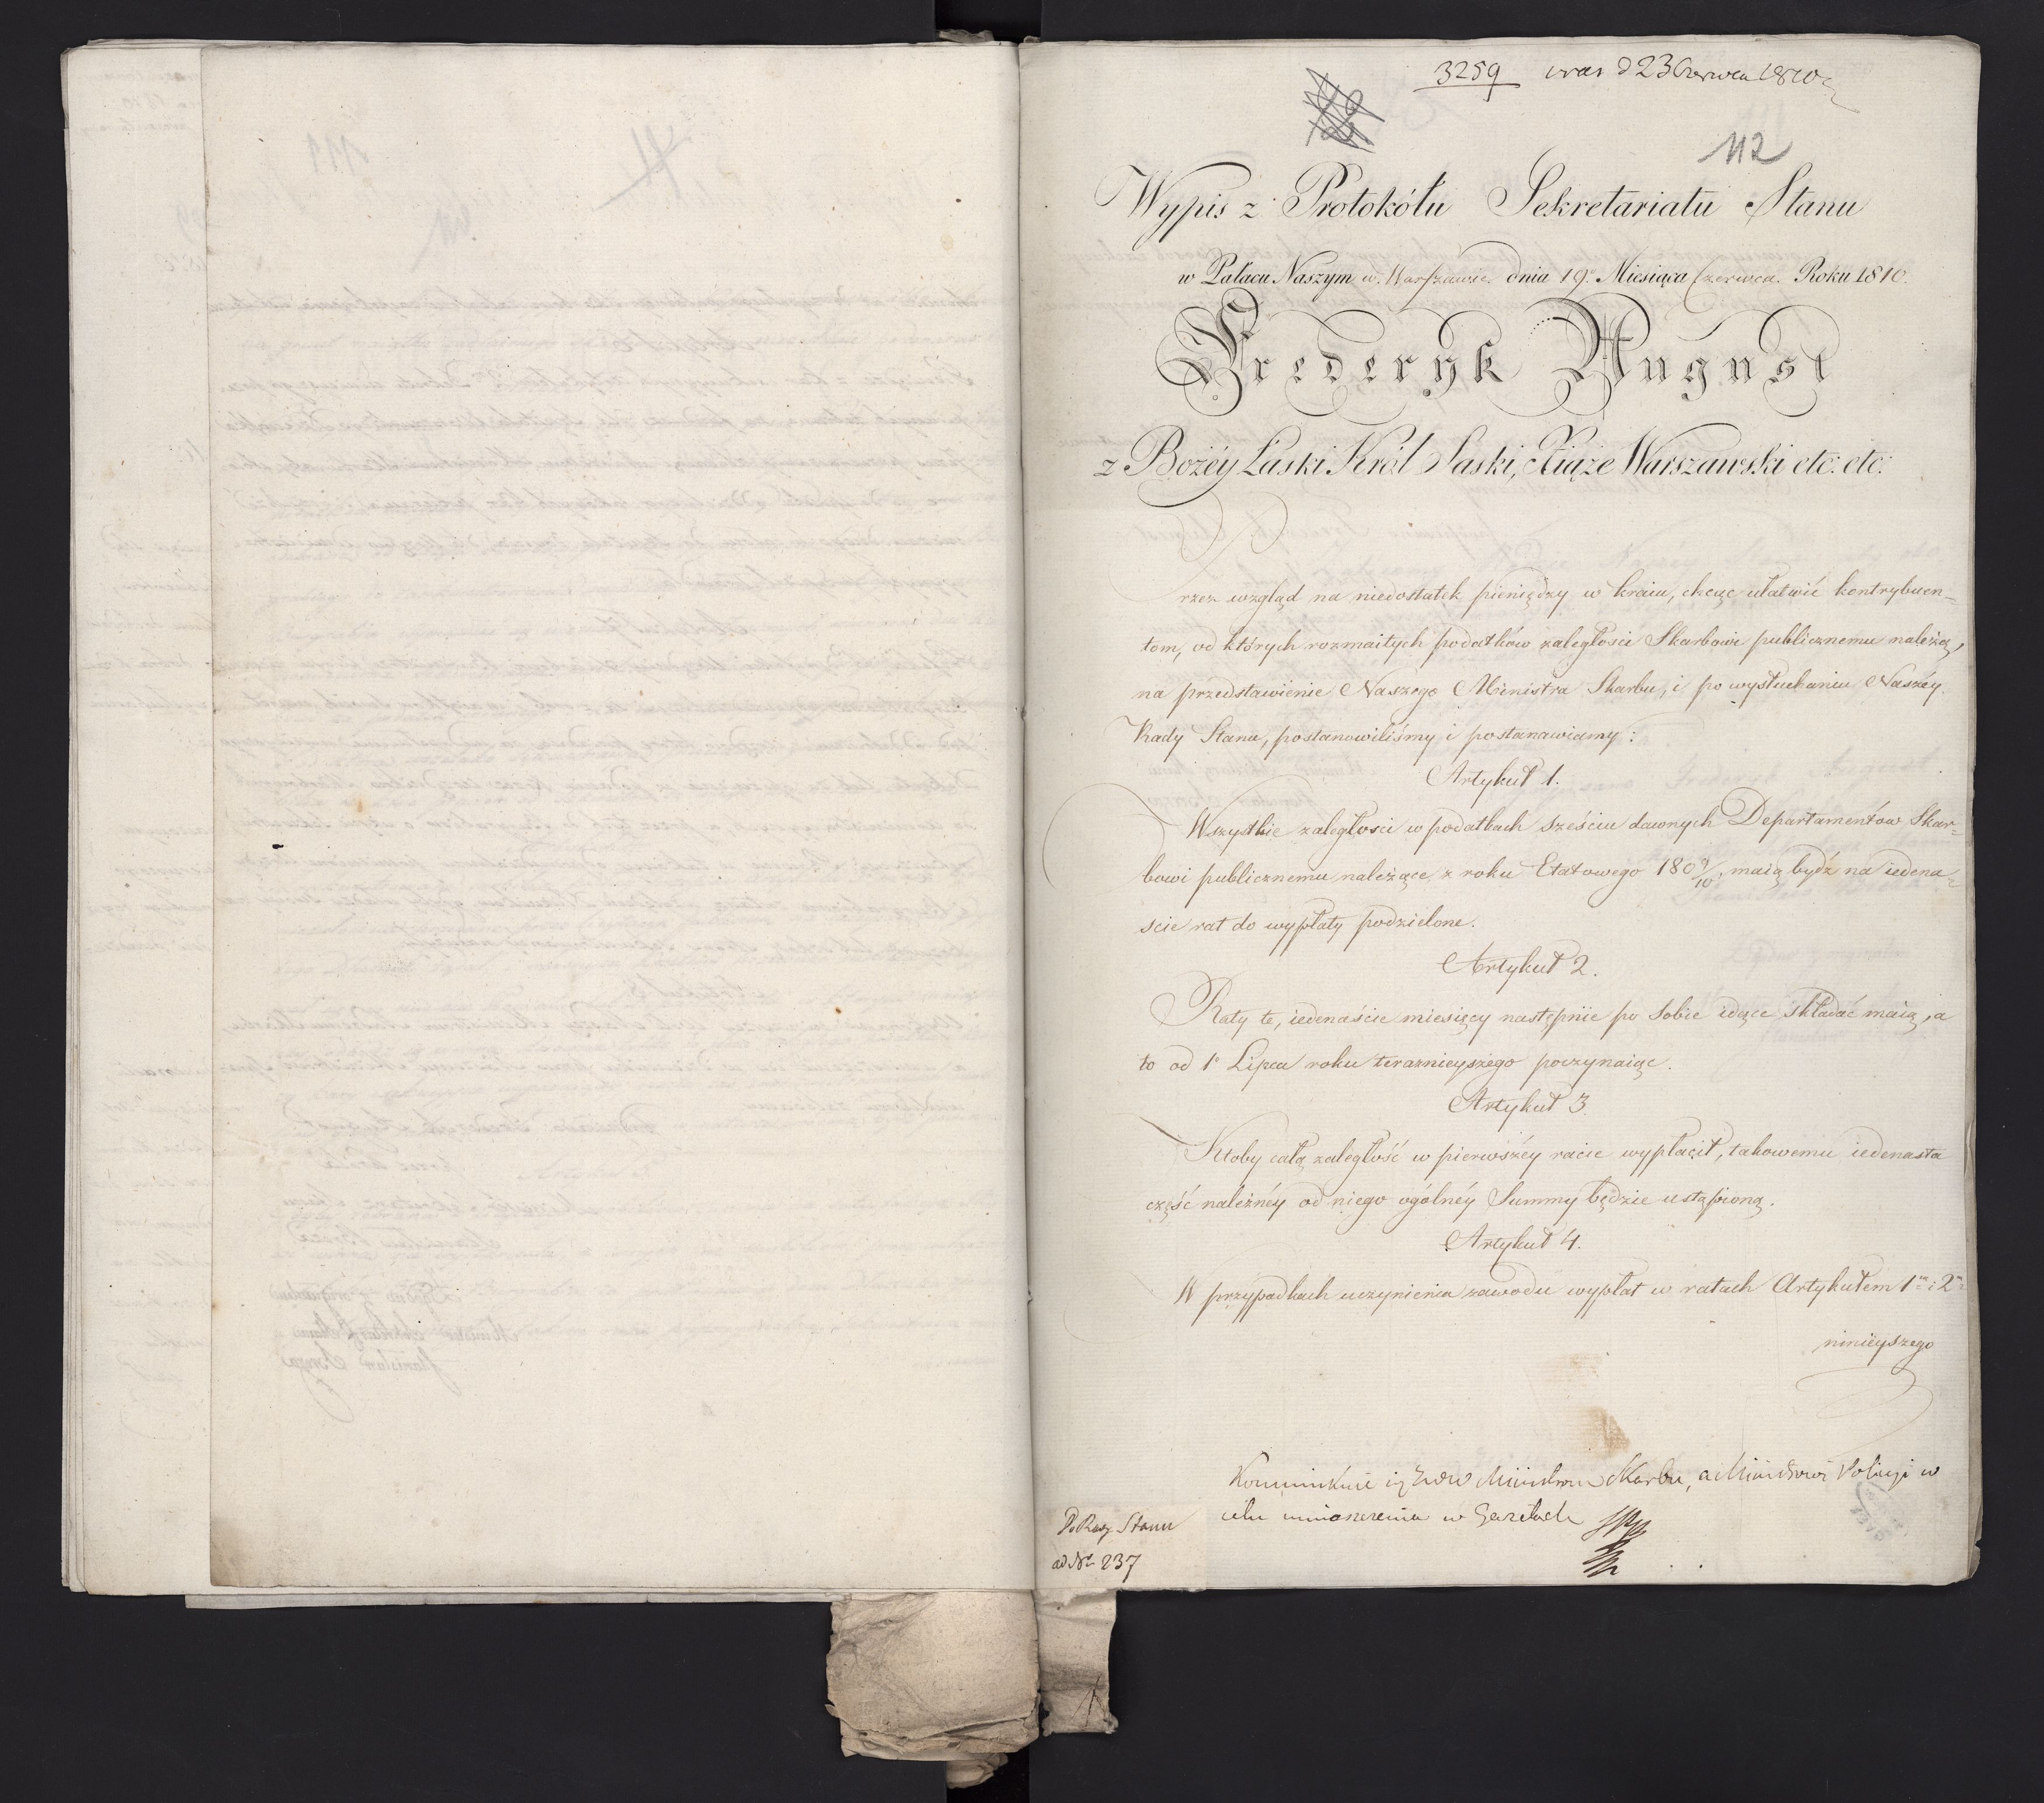 3259 wras d 23 Czerwca 1810
112
Wypis z Protokółu Sekretariatu Stanu
w Pałacu Naszym w Warszawie dnia 19. Miesiąca Czerwca. Roku 1810.
Frederyk August
z Bożéy Łaski Król Saski, Xiąże Warszawski etc: etc:
Przez wzgląd na niedostatek pieniędzy w kraiu, chcąc ułatwić kontrybuen-
tom, od których rozmaitych podatków zaległości Skarbowi publicznemu należą,
na przedstawienie Naszego Ministra Skarbu, i po wysłuchaniu Naszéy
Rady Stanu, postanowiliśmy i postanawiamy:
Artykuł 1.
Wszystkie zaległosci w podatkach sześciu dawnych Departamentów Skar=
bowi publicznemu należące z roku Etatowego 1809/10, maią bydź na iedena=
ście rat do wypłaty podzielone.
Artykuł 2.
Raty te, iedenaście miesięcy następnie po sobie idące składać maią, a
to od 1o Lipca roku teraznieyszego poczynaiąc.
Artykuł 3.
Ktoby całą zaległość w pierwszéy racie wypłacił, takowemu iedenasta
część należnéy od niego ogólnéy Summy będzie ustąpioną.
Artykuł 4.
W przypadkach uczynienia zawodu wypłat w ratach Artykułem 1m i 2m
ninieyszego
Ministrowi Skarbu, a Ministrowi Policyi w
celu umieszczenia w Gazetach
P. Rady Stanu
ad No 237